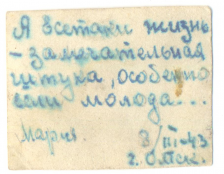 А всетаки жизнь
- замечательная
штука, особенно
если молода...
Мария. 3/III-43
г. Омск.